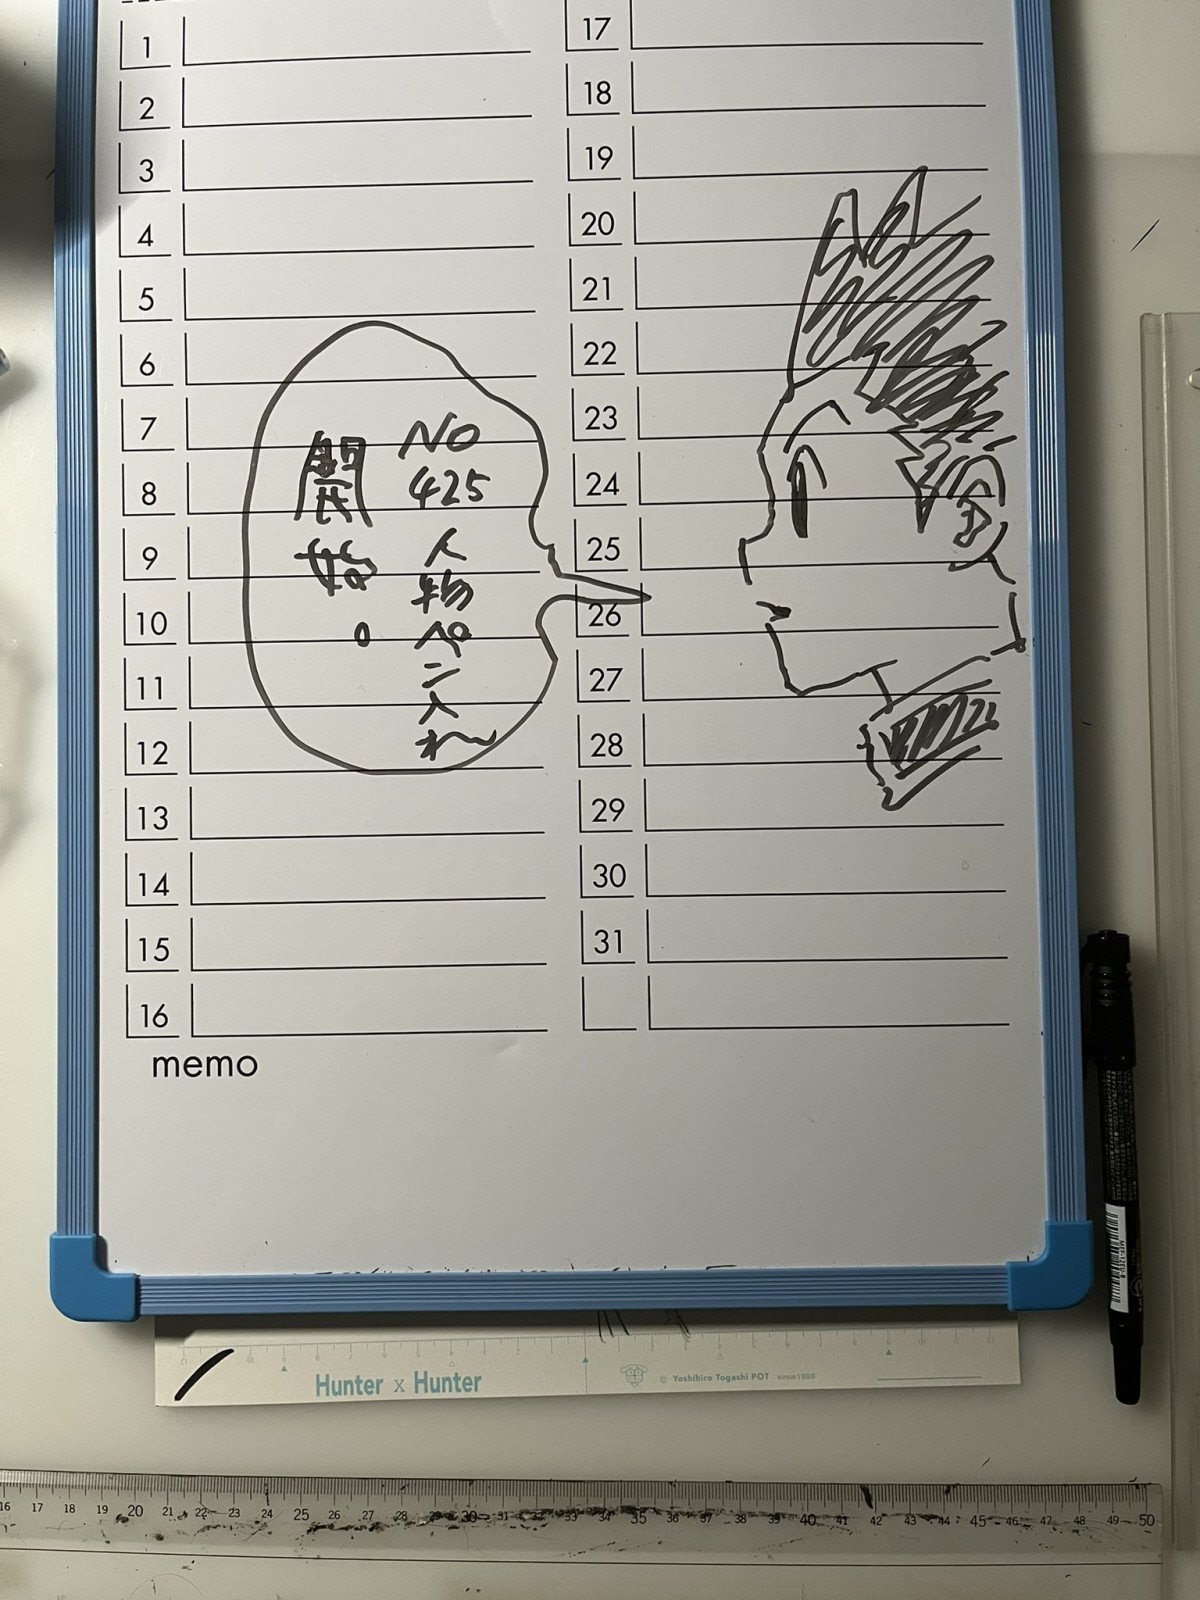 1
2
3
4
5
6
7
8
9
10
11
12
13
14
15
16
17
18
19
20
21
22
23
24
25
26
27
28
29
30
31
No
425
人物ペン入れ
開始。
memo
Hunter x Hunter
© Yoshihiro Togashi POT since1998
16 17 18 19 20 21 22 23 24 25 26 27 28 29 30 31 32 33 34 35 36 37 38 39 40 41 42 43 44 45 46 47 48 49 50